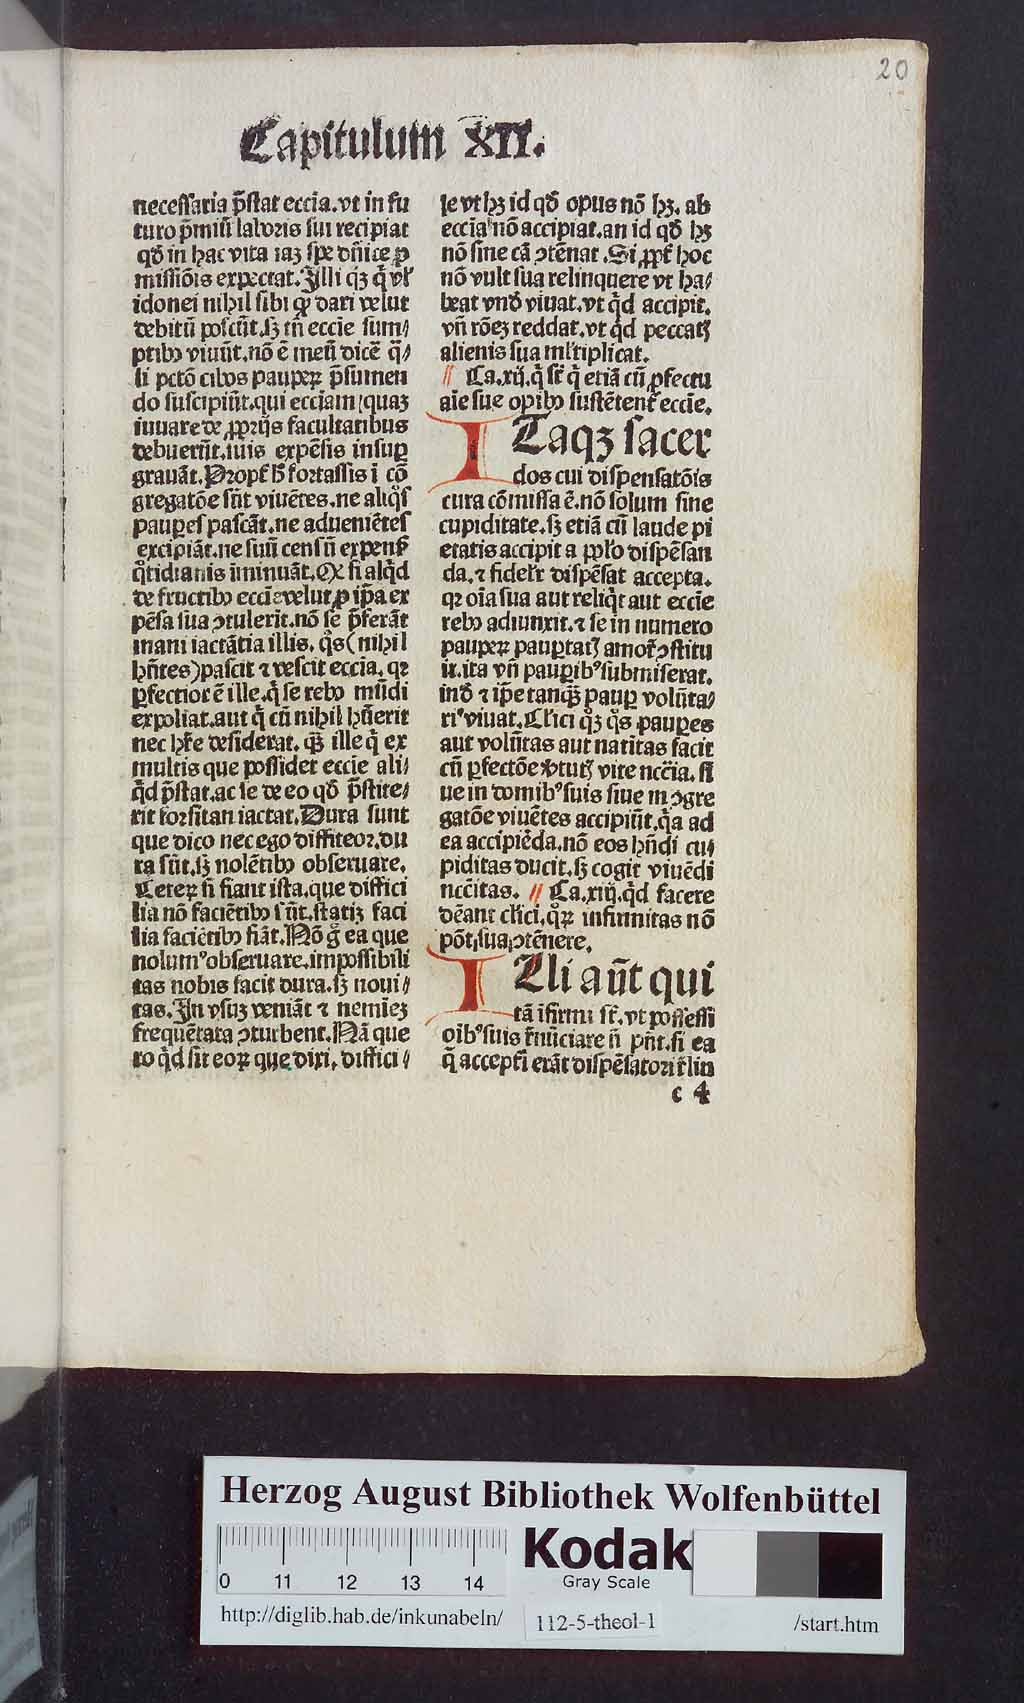 20
Capitulum XII.
necessaria p̄stat ecc̄ia. vt in fu
turo p̄miū laboris sui recipiat
qd̄ in hac vita iaꝫ spe dn̄ice ꝓ
missiōis expectat. Illi qͥꝫ q̄ vl̓
idonei nihil sibi qͥꝑ dari velut
debitū poscūt. sꝫ tn̄ ecc̄ie sum⸗
ptibꝰ viuūt. nō ē meū dicē q̄⸗
li pctō cibos pauperꝝ p̄sumen
do suscipiūt. qui ecc̄iam (quaz
iuuare de ꝓprijs facultatibus
debuerūt. suis expēsis insuꝑ
grauāt. Propt̓ h̓ fortassis ī cō
gregatōe sūt viuētes. ne aliqͦs
pauꝑes pascāt. ne aduenietes
excipiāt. ne suū censū expenẜ
qͦtidianis īminuāt. Ꝙ si aliqͥd
de fructibꝰ ecc̄ie velut ꝓ ip̄a ex
pēsa sua ꝯtulerit. nō se p̄ferāt
inani iactātia illis. qͦs (nihil
hn̄tes) pascit ⁊ vescit ecc̄ia. qꝛ
ꝑfectior ē ille. q̄ se rebꝰ mūdi
expoliat. aut q̄ cū nihil hūerit
nec hr̄e desiderat. qꝫ ille q̄ ex
multis que possidet ecc̄ie ali⸗
qͥd p̄stat. ac se de eo qd̄ p̄stite⸗
rit forsitan iactat. Dura sunt
que dico nec ego diffiteor. du
ra sūt. sꝫ nolētibꝰ obseruare.
Ceterꝝ si fiant ista. que diffici
lia nō faciētibꝰ sūt. statiꝫ faci
lia faciētibꝰ fiāt. Nō gͦ ea que
nolumꝰ obseruare. impossibili
tas nobis facit dura. sꝫ noui⸗
tas. In vsuꝫ veniāt ⁊ neminēz
frequētata ꝯturbent. Nā que
ro qͥd sit eoꝝ que dixi. diffici⸗
le vt hꝫ id qd̄ opus nō hꝫ. ab
ecc̄ia nō accipiat. an id qd̄ hꝫ
nō sine cā ꝯtēnat. Si ꝓpt̓ hoc
nō vult sua relinquere vt ha⸗
beat vnd̄ viuat. vt qͥd accipit.
vn̄ rōeꝫ reddat. vt qͥd peccatꝭ
alienis sua ml̓tiplicat.
Ca. xij. q̄ sr̄ q̄ etiā cū ꝓfectu
aīe sue opibꝰ sustētent̓ ecc̄ie.
ITaqꝫ sacer
dos cui dispensatōis
cura cōmissa ē. nō solum sine
cupiditate. sꝫ etiā cū laude pi
etatis accipit a pplo dispēsan
da. ⁊ fidelr̄ dispēsat accepta.
qꝛ oīa sua aut reliqͥt aut ecc̄ie
rebꝰ adiunxit. ⁊ se in numero
pauperꝝ pauꝑtatꝭ amor̄ ꝯstitu
it. ita vn̄ pauꝑibꝰ submiserat.
ind̄ ⁊ ip̄e tanqꝫ pauꝑ volūta⸗
riꝰ viuat. Cl̓ici qͥꝫ qͦs pauꝑes
aut volūtas aut natitas facit
cū ꝑfectōe vtutꝭ vite ncc̄ia. si
ue in domibꝰ suis siue in ꝯgre
gatōe viuētes accipiūt. qͥa ad
ea accipiēda. nō eos hn̄di cu⸗
piditas ducit. sꝫ cogit viuēdi
ncc̄itas. Ca. xiij. qͥd facere
dēant cl̓ici. qͦꝝ infirmitas nō
pōt sua ꝯtēnere.
ILli aūt qui
tā īfirmi sr̄. vt possessi
oibꝰ suis r̄nūciare n̄ pn̄t. si ea
q̄ acceptꝭ erāt dispēsatori r̄lin
c 4
Herzog August Bibliothek Wolfenbüttel
0 11 12 13 14
Kodak
Gray Scale
http://diglib.hab.de/inkunabeln/
112-5-theol-1
/start.htm